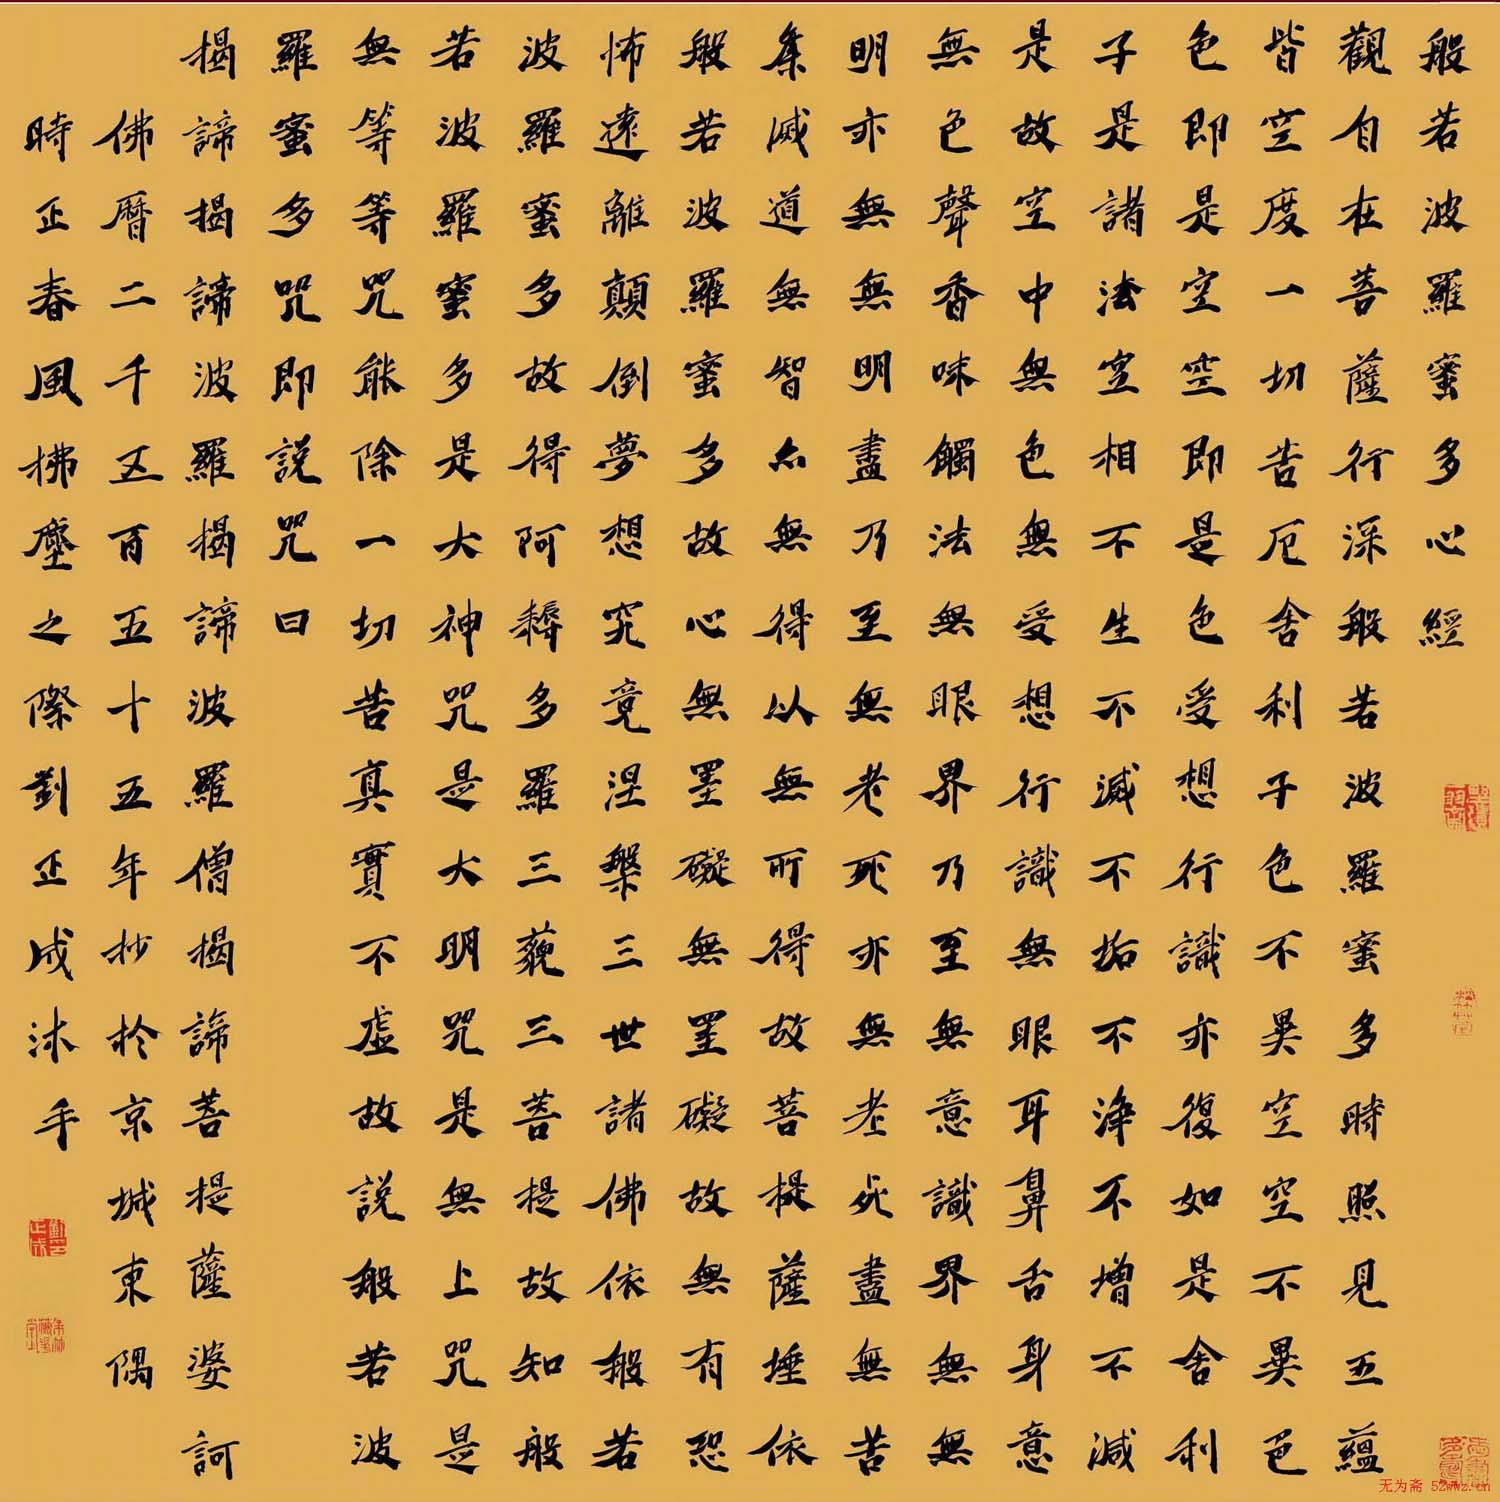 般若波羅蜜多心經
觀自在菩薩行深般若波羅蜜多時照見五蘊
皆空度一切苦厄舍利子色不異空空不異色
色即是空空即是色受想行識亦復如是舍利
子是諸法空相不生不滅不垢不淨不增不減
是故空中無色無受想行識無眼耳鼻舌身意
無色聲香味觸法無眼界乃至無意識界無無
明亦無無明盡乃至無老死亦無老死盡無苦
集滅道無智亦無得以無所得故菩提薩埵依
般若波羅蜜多故心無罣礙無罣礙故無有恐
怖遠離顛倒夢想究竟涅槃三世諸佛依般若
波羅蜜多故得阿耨多羅三藐三菩提故知般
若波羅蜜多是大神咒是大明咒是無上咒是
無等等咒能除一切苦真實不虛故說般若波
羅蜜多咒即說咒曰
揭諦揭諦波羅揭諦波羅僧揭諦菩提薩婆訶
佛曆二千五百五十五年抄於京城東隅
時正春風拂塵之際劉正成沐手
无为斋 52wwz.cn